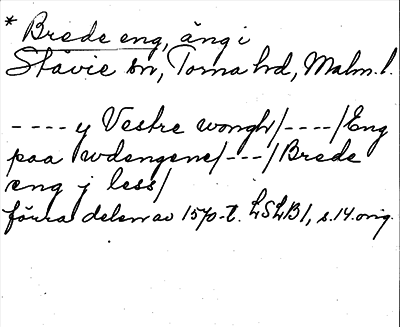 * Brede eng, äng i
Stävie sn, Torna hd, Malm. l.
---- y Vestre wongh/----/Eng
paa wdengene/---/Brede
eng j less/
förra delen av 1570-t. LSLB1, s. 14. orig.